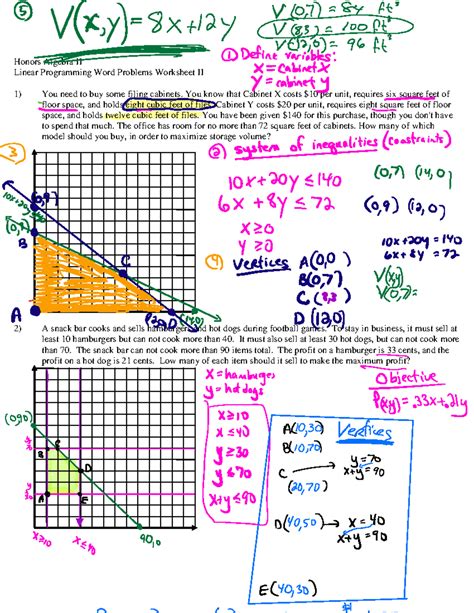 ⑤ V(x,y) = 8x+12y
V(0,7) = 84 ft³
V(8,3) = 100 ft³
V(12,0) = 96 ft³
① Define variables:
x = cabinet X
y = cabinet Y
Honors Algebra II
Linear Programming Word Problems Worksheet II
1) You need to buy some filing cabinets. You know that Cabinet X costs $10 per unit, requires six square feet of
floor space, and holds eight cubic feet of files. Cabinet Y costs $20 per unit, requires eight square feet of floor
space, and holds twelve cubic feet of files. You have been given $140 for this purchase, though you don't have
to spend that much. The office has room for no more than 72 square feet of cabinets. How many of which
model should you buy, in order to maximize storage volume?
3
② system of inequalities (constraints)
10x+20y ≤ 140
6x + 8y ≤ 72
x ≥ 0
y ≥ 0
(0,7) (14,0)
(0,9) (12,0)
10x+20y = 140
6x+8y = 72
V(x,y)
V(0,7)=
(0,9)
(0,7)
B
C
D
A
④ Vertices A(0,0)
B(0,7)
C(8,3)
D(12,0)
2) A snack bar cooks and sells hamburgers and hot dogs during football games. To stay in business, it must sell at
least 10 hamburgers but can not cook more than 40. It must also sell at least 30 hot dogs, but can not cook more
than 70. The snack bar can not cook more than 90 items total. The profit on a hamburger is 33 cents, and the
profit on a hot dog is 21 cents. How many of each item should it sell to make the maximum profit?
x = hamburgers
y = hot dogs
Objective
P(x,y) = .33x+.21y
x ≥ 10
x ≤ 40
y ≥ 30
y ≤ 70
x+y ≤ 90
Vertices
A(10,30)
B(10,70)
C → y=70
x+y=90
(20,70)
D(40,50) → x = 40
x+y = 90
E(40,30)
(0,90)
B
C
D
A
E
x≥10
x≤40
90,0